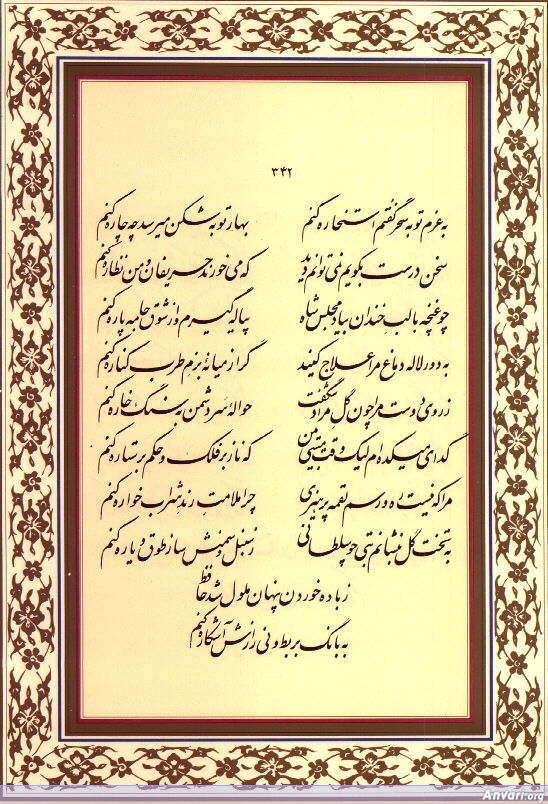 ۳۴۲
به عزم توبه سحر گفتم استخاره کنم بهار توبه شکن میرسد چه چاره کنم
سخن درست بگویم نمی توانم دید که می خورند حریفان و من نظاره کنم
چو غنچه با لب خندان بیاد مجلس شاه پیاله گیرم و از شوق جامه پاره کنم
به دور لاله دماغ مرا علاج کنید گر از میانهٔ بزم طرب کناره کنم
ز روی دوست مرا چون گل مراد شکفت حوالهٔ سر دشمن به سنگ خاره کنم
گدای میکده ام لیک وقت مستی بین که ناز بر فلک و حکم بر ستاره کنم
مرا که نیست ره و رسم لقمه پرهیزی چرا ملامت رند شرابخواره کنم
به تخت گل بنشانم بتی چو سلطانی ز سنبل و سمنش ساز طوق و یاره کنم
ز باده خوردن پنهان ملول شد حافظ
به بانگ بربط و نی رازش آشکاره کنم
AnVari.org